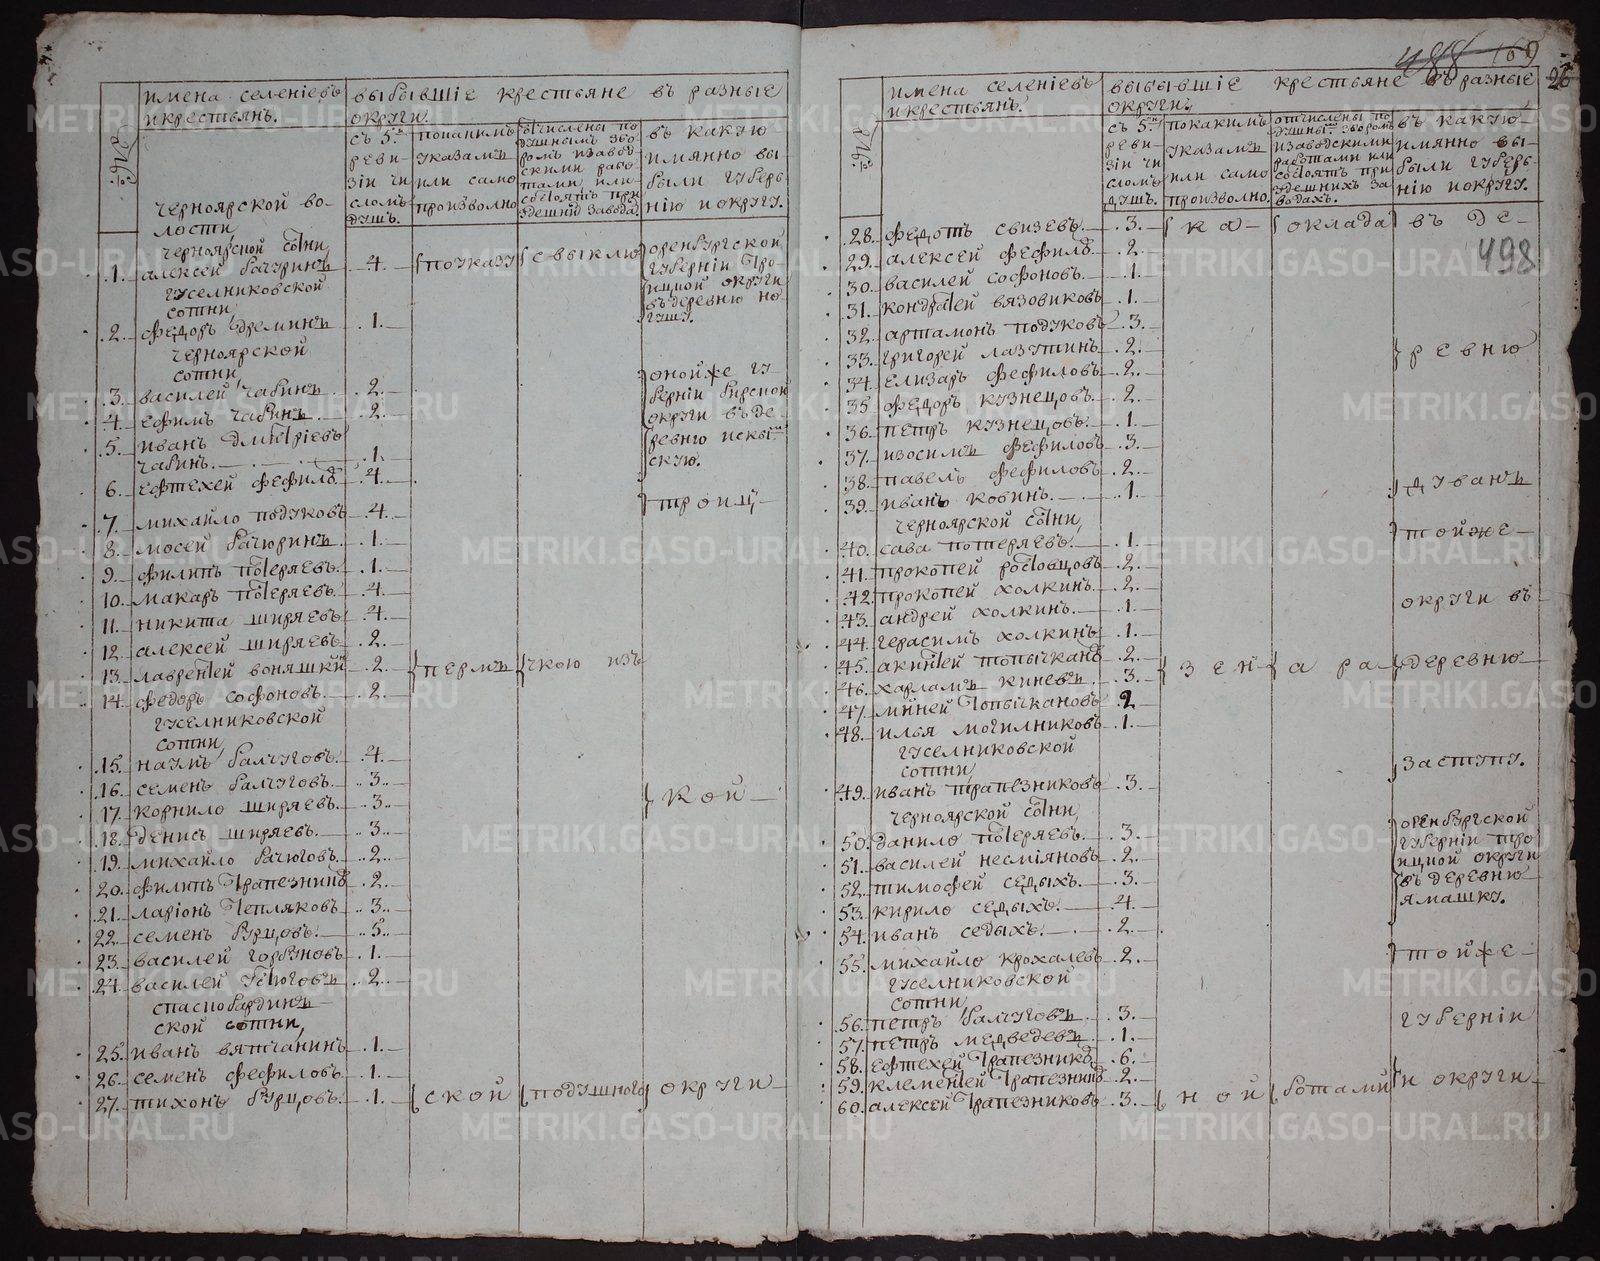 имена селенiевъ
и крестьянъ.
выбывшiе крестьяне въ разные
округи.
№
съ 5й
реви-
зiи чи
сломъ
душъ.
покакимъ
указамъ
или само
произволно
въ какую
имянно вы-
были губерь
нiю и округу.
черноярской во-
лости
черноярской сотни
1. алексей бачуринъ 4. по указу с выклю оренбургской
губернiи тро-
ицкой округи
въ деревню
гуселниковской
сотни
2. федоръ еремин 1.
черноярской
сотни
3. василей чабинъ 2. оной же гу
бернiи бирской
4. ефимъ чабинъ 2. округи въ де-
5. иванъ дмитрiевъ ревню
чабинъ. 1. скую.
6. ефтехей фефиловъ 4.
троиц-
7. михайло подуковъ 4.
8. мосей бачюринъ 1.
9. филипъ потеряевъ 1.
10. макаръ потеряевъ 4.
11. никита ширяевъ 4.
12. алексей ширяевъ 2.
13. лаврентей воняшкин 2. пермъ чкою изъ
14. федоръ софоновъ 2.
гуселниковской
сотни
15. наумъ балчуговъ 4.
16. семенъ балчуговъ 3.
кой
17. корнило ширяевъ 3.
18. денисъ ширяевъ 3.
19. михайло бачюговъ 2.
20. филипъ трапезник 2.
21. ларiонъ тепляковъ 3.
22. семенъ бурцовъ 5.
23. василей горбуновъ 1.
24. василей устюговъ 2.
спасиобардинъ
ской сотни
25. иванъ вятчанинъ 1.
26. семенъ фефиловъ 1.
27. тихонъ бурцовъ 1. ской подушного округи
169
488
26
498
имена селенiевъ
и крестьянъ.
выбывшiе крестьяне въ разные
округи.
№
съ 5й
реви-
зiи чи
сломъ
душъ.
покакимъ
указамъ
или само
произволно.
отчислены по
душнымъ зборомъ
и заводскими
работами или
состоятъ при
здешнихъ за
водахъ.
въ какую
имянно вы-
были губерь
нiю и округу.
28. федотъ свизевъ 3. ка- оклада въ де-
29. алексей фефиловъ 2.
30. василей софоновъ 1.
31. кондратей вязовиковъ 1.
32. артамонъ подуковъ 3.
33. григорей лазутинъ 2. ревню
34. елизаръ фефиловъ 2.
35. федоръ кузнецовъ 2.
36. петръ кузнецовъ 1.
37. изосимъ фефиловъ 3.
38. павелъ фефиловъ 2.
39. иванъ кобинъ 1. дуванъ
черноярской сотни
тойже
40. сава потеряевъ 1.
41. прокопей ростовцовъ 2.
42. прокопей холкинъ 2. округи въ
43. андрей холкинъ 1.
44. герасимъ холкинъ 1.
45. акинтей топычканов 2. зен а ра- деревню
46. харламъ киневъ 3.
47. миней топычкановъ 2.
48. илья могилниковъ 1.
гуселниковской
сотни
заступу.
49. иванъ трапезниковъ 3.
черноярской сотни
оренбургской
50. данило потеряевъ 3. губернiи тро
51. василей несмiяновъ 2. ицкой округи
52. тимофей седыхъ 3. въ деревню
53. кирило седыхъ 4. ямашку.
54. иванъ седыхъ 2.
55. михайло крохалевъ 2. тойже
гуселниковской
сотни
56. петръ балчуговъ 3. губернiи
57. петръ медведевъ 1.
58. ефтехей трапезников 6.
59. клементей трапезник 2. и округи
60. алексей трапезниковъ 3. ной ботами
METRIKI.GASO-URAL.RU